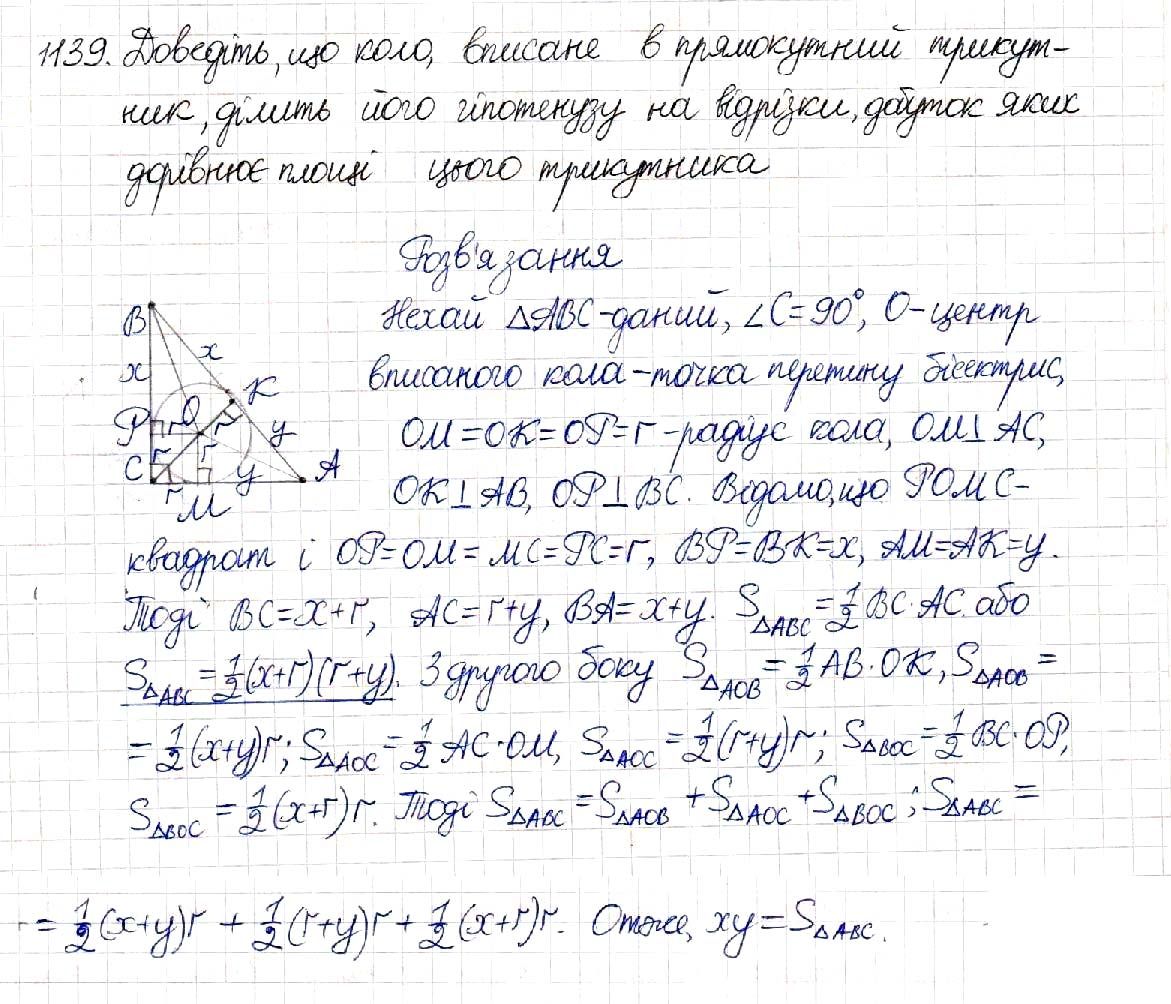 1139. Доведіть, що коло, вписане в прямокутний трикут-
ник, ділить його гіпотенузу на відрізки, добуток яких
дорівнює площі цього трикутника
Розв'язання
Нехай △ABC-даний, ∠C=90°, O-центр
вписаного кола-точка перетину бісектрис,
OM=OK=OP=r-радіус кола, OM⊥AC,
OK⊥AB, OP⊥BC. Відомо, що POMC-
квадрат і OP=OM=MC=PC=r, BP=BK=x, AM=AK=y.
Тоді BC=x+r, AC=r+y, BA=x+y. S△ABC=1/2 BC·AC. або
S△ABC=1/2(x+r)(r+y). З другого боку S△AOB=1/2 AB·OK, S△AOB=
=1/2(x+y)r; S△AOC=1/2 AC·OM, S△AOC=1/2(r+y)r; S△BOC=1/2 BC·OP,
S△BOC=1/2(x+r)r. Тоді S△ABC=S△AOB+S△AOC+S△BOC; S△ABC=
=1/2(x+y)r+1/2(r+y)r+1/2(x+r)r. Отже, xy=S△ABC.
B
x
x
K
P
r
O
r
y
C
r
r
y
A
r
M